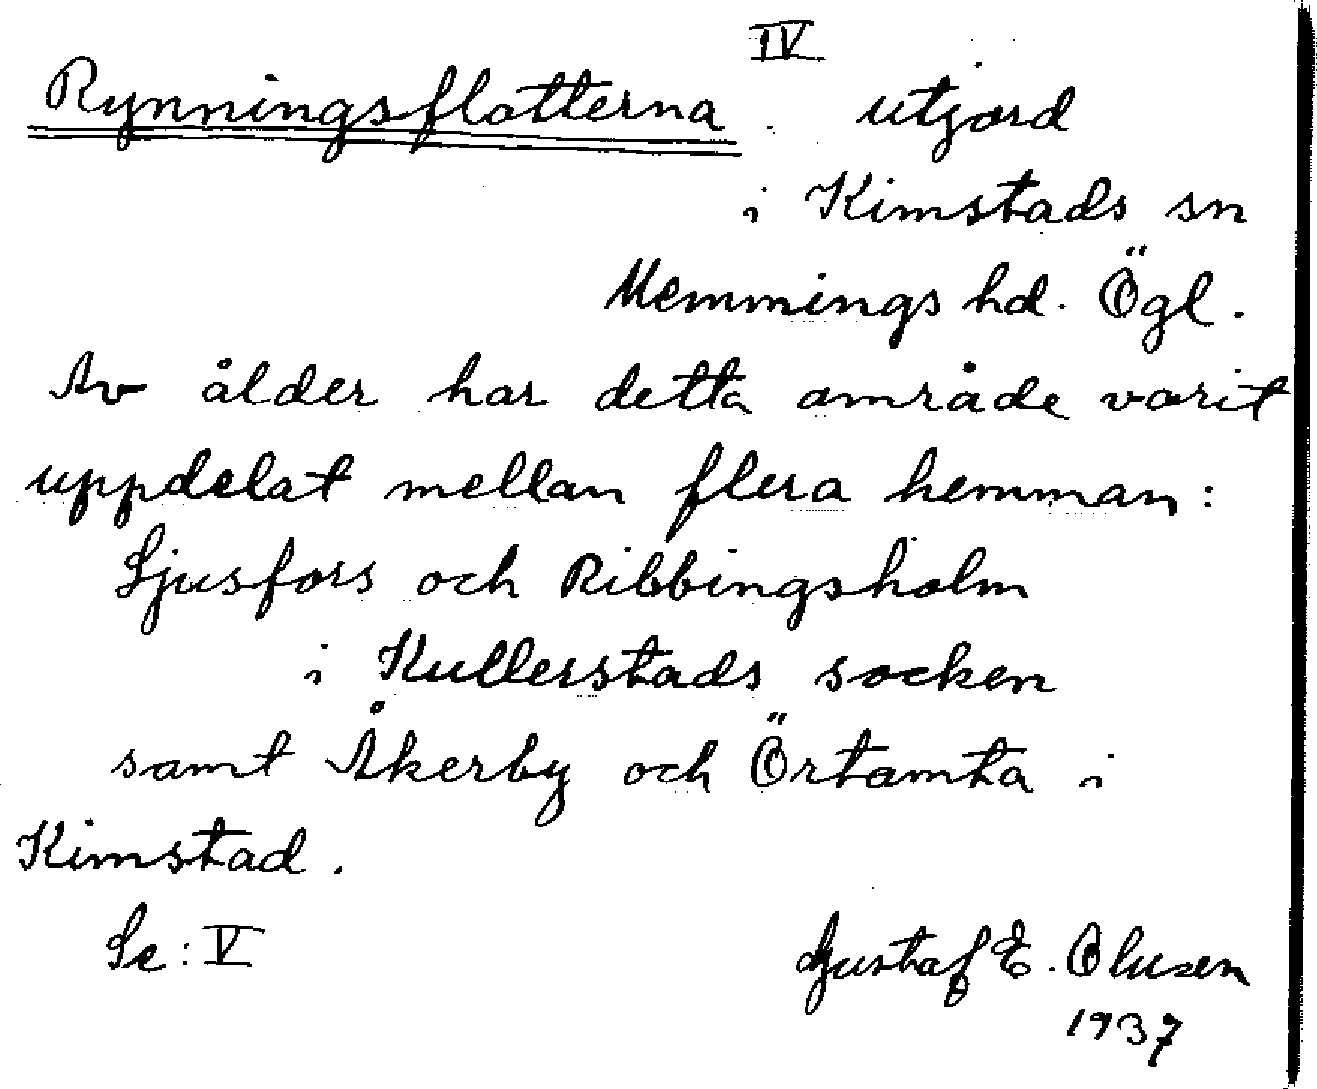 IV
Rynningsflatterna utjord
i Kimstads sn
Memmings hd. Ögl.
Av ålder har detta område varit
uppdelat mellan flera hemman:
Ljusfors och Ribbingsholm
i Kullerstads socken
samt Åkerby och Örtomta i
Kimstad.
Se: V
Gustaf E. Olusen
1937